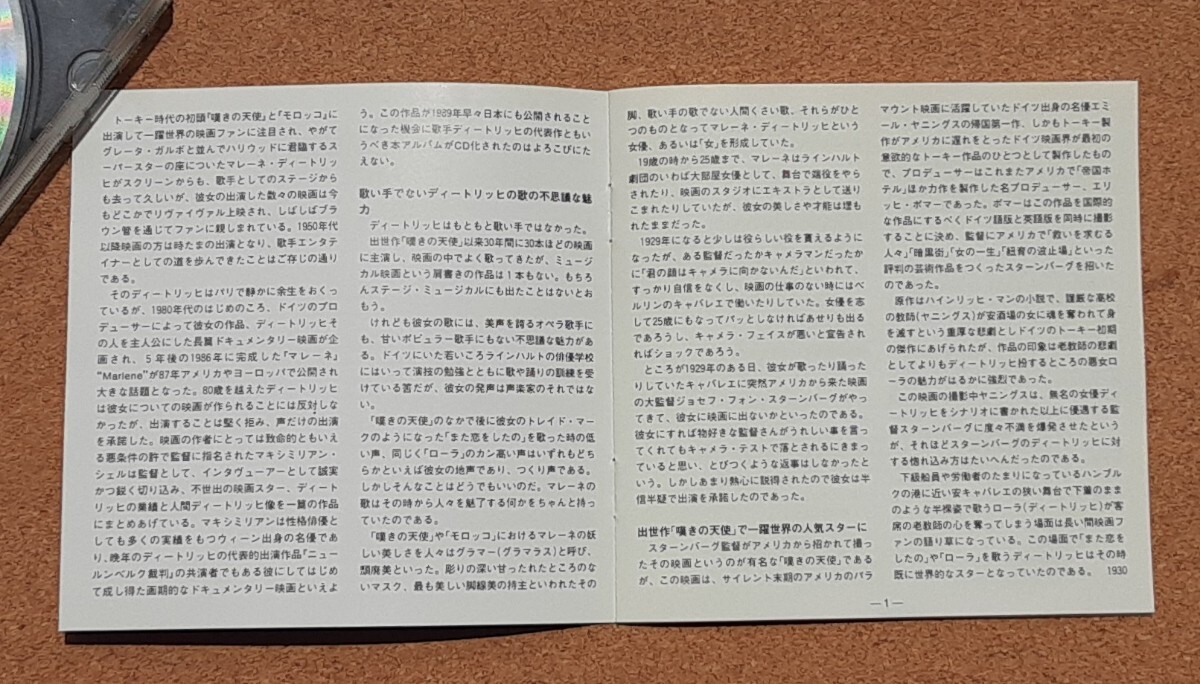 トーキー時代の初頭「嘆きの天使」と「モロッコ」に
出演して一躍世界の映画ファンに注目され、やがて
グレータ・ガルボと並んでハリウッドに君臨するス
ーパースターの座についたマレーネ・ディートリッ
ヒがスクリーンからも、歌手としてのステージから
も去って久しいが、彼女の出演した数々の映画は今
もどこかでリヴァイヴァル上映され、しばしばブラ
ウン管を通じてファンに親しまれている。1950年代
以降映画の方は時たまの出演となり、歌手エンタテ
イナーとしての道を歩んできたことはご存じの通り
である。
そのディートリッヒはパリで静かに余生をおくっ
ているが、1980年代のはじめのころ、ドイツのプロ
デューサーによって彼女の作品、ディートリッヒそ
の人を主人公にした長篇ドキュメンタリー映画が企
画され、5年後の1986年に完成した「マレーネ」
“Marlene”が87年アメリカやヨーロッパで公開され
大きな話題となった。80歳を越えたディートリッヒ
は彼女についての映画が作られることには反対しな
かったが、出演することは堅く拒み、声だけの出演
を承諾した。映画の作者にとっては致命的ともいえ
る悪条件の許で監督に指名されたマキシミリアン・
シェルは監督として、インタヴューアーとして誠実
かつ鋭く切り込み、不世出の映画スター、ディート
リッヒの業績と人間ディートリッヒ像を一篇の作品
にまとめあげている。マキシミリアンは性格俳優と
しても多くの実績をもつウィーン出身の名優であ
り、晩年のディートリッヒの代表的出演作品「ニュー
ルンベルク裁判」の共演者でもある彼にしてはじめ
て成し得た画期的なドキュメンタリー映画といえよ
う。この作品が1989年早々日本にも公開されること
になった機会に歌手ディートリッヒの代表作ともい
うべき本アルバムがCD化されたのはよろこびにた
えない。
歌い手でないディートリッヒの歌の不思議な魅
力
ディートリッヒはもともと歌い手ではなかった。
出世作「嘆きの天使」以来30年間に30本ほどの映画
に主演し、映画の中でよく歌ってきたが、ミュージ
カル映画という肩書きの作品は1本もない。もちろ
んステージ・ミュージカルにも出たことはないとお
もう。
けれども彼女の歌には、美声を誇るオペラ歌手に
も、甘いポピュラー歌手にもない不思議な魅力があ
る。ドイツにいた若いころラインハルトの俳優学校
にはいって演技の勉強とともに歌や踊りの訓練を受
けている筈だが、彼女の発声は声楽家のそれではな
い。
「嘆きの天使」のなかで後に彼女のトレイド・マー
クのようになった「また恋をしたの」を歌った時の低
い声、同じく「ローラ」のカン高い声はいずれもどち
らかといえば彼女の地声であり、つくり声である。
しかしそんなことはどうでもいいのだ。マレーネの
歌はその時から人々を魅了する何かをちゃんと持っ
ていたのである。
「嘆きの天使」や「モロッコ」におけるマレーネの妖
しい美しさを人々はグラマー(グラマラス)と呼び、
頽廃美といった。彫りの深い甘ったれたところのな
いマスク、最も美しい脚線美の持主といわれたその
脚、歌い手の歌でない人間くさい歌、それらがひと
つのものとなってマレーネ・ディートリッヒという
女優、あるいは「女」を形成していた。
19歳の時から25歳まで、マレーネはラインハルト
劇団のいわば大部屋女優として、舞台で端役をやら
されたり、映画のスタジオにエキストラとして送り
こまれたりしていたが、彼女の美しさや才能は埋も
れたままだった。
1929年になると少しは役らしい役を貰えるように
なったが、ある監督だったかキャメラマンだったか
に「君の顔はキャメラに向かないんだ」といわれて、
すっかり自信をなくし、映画の仕事のない時にはベ
ルリンのキャバレエで働いたりしていた。女優を志
して25歳にもなってパッとしなければあせりも出る
であろうし、キャメラ・フェイスが悪いと宣告され
ればショックであろう。
ところが1929年のある日、彼女が歌ったり踊った
りしていたキャバレエに突然アメリカから来た映画
の大監督ジョセフ・フォン・スターンバーグがやっ
てきて、彼女に映画に出ないかといったのである。
彼女にすれば物好きな監督さんがうれしい事を言っ
てくれてもキャメラ・テストで落とされるにきまっ
ていると思い、とびつくような返事はしなかったと
いう。しかしあまり熱心に説得されたので彼女は半
信半疑で出演を承諾したのであった。
出世作「嘆きの天使」で一躍世界の人気スターに
スターンバーグ監督がアメリカから招かれて撮っ
たその映画というのが有名な「嘆きの天使」である
が、この映画は、サイレント末期のアメリカのパラ
マウント映画に活躍していたドイツ出身の名優エミ
ール・ヤニングスの帰国第一作、しかもトーキー製
作がアメリカに遅れをとったドイツ映画界が最初の
意欲的なトーキー作品のひとつとして製作したもの
で、プロデューサーはこれまたアメリカで「帝国ホ
テル」ほか力作を製作した名プロデューサー、エリ
ッヒ・ポマーであった。ポマーはこの作品を国際的
な作品にするべくドイツ語版と英語版を同時に撮影
することに決め、監督にアメリカで「救いを求むる
人々」「暗黒街」「女の一生」「紐育の波止場」といった
評判の芸術作品をつくったスターンバーグを招いた
のであった。
原作はハインリッヒ・マンの小説で、謹厳な高校
の教師(ヤニングス)が安酒場の女に魂を奪われて身
を滅すという重厚な悲劇としドイツのトーキー初期
の傑作にあげられたが、作品の印象は老教師の悲劇
としてよりもディートリッヒ扮するところの悪女ロ
ーラの魅力がはるかに強烈であった。
この映画の撮影中ヤニングスは、無名の女優ディ
ートリッヒをシナリオに書かれた以上に優遇する監
督スターンバーグに度々不満を爆発させたという
が、それほどスターンバーグのディートリッヒに対
する惚れ込み方はたいへんだったのである。
下級船員や労働者のたまりになっているハンブル
クの港に近い安キャバレエの狭い舞台で下着のまま
のような半裸姿で歌うローラ(ディートリッヒ)が客
席の老教師の心を奪ってしまう場面は長い間映画フ
ァンの語り草になっている。この場面で「また恋を
したの」や「ローラ」を歌うディートリッヒはその時
既に世界的なスターとなっていたのである。 1930
—1—